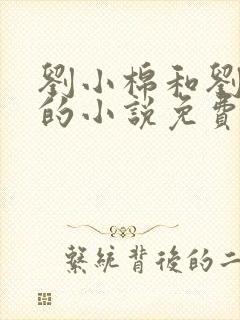 劉小棉和劉
的小說免費
繫統背後的二